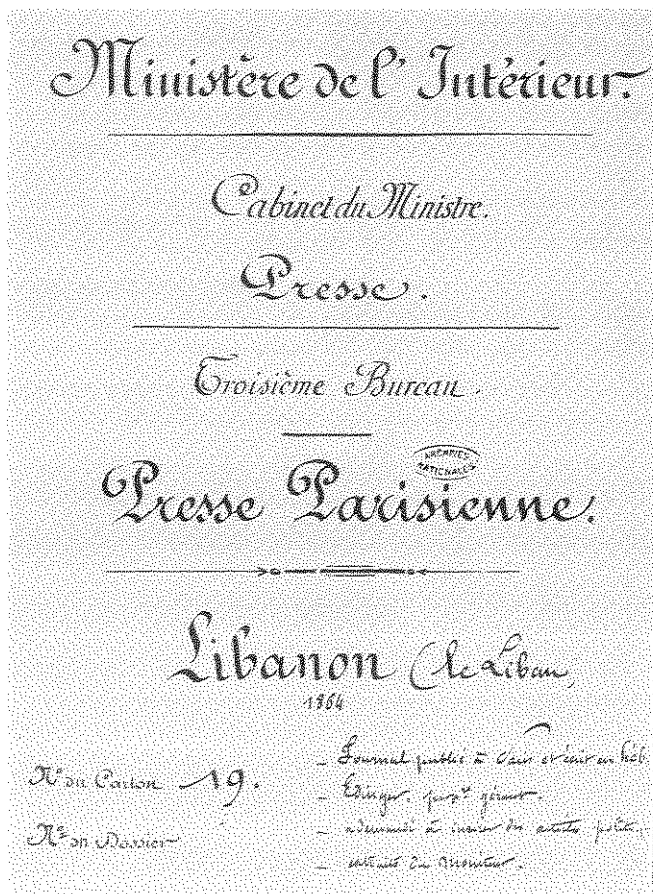 Ministère de l'Intérieur.
Cabinet du Ministre.
Presse.
Troisième Bureau.
ARCHIVES
NATIONALES
Presse Parisienne.
Libanon (le Liban)
1864
N° du Carton 19.
N° du Dossier
_ Journal publié à Paris et écrit en héb.
_ gérant.
_ a demandé à insérer des articles polit.
_ extraits du Moniteur.